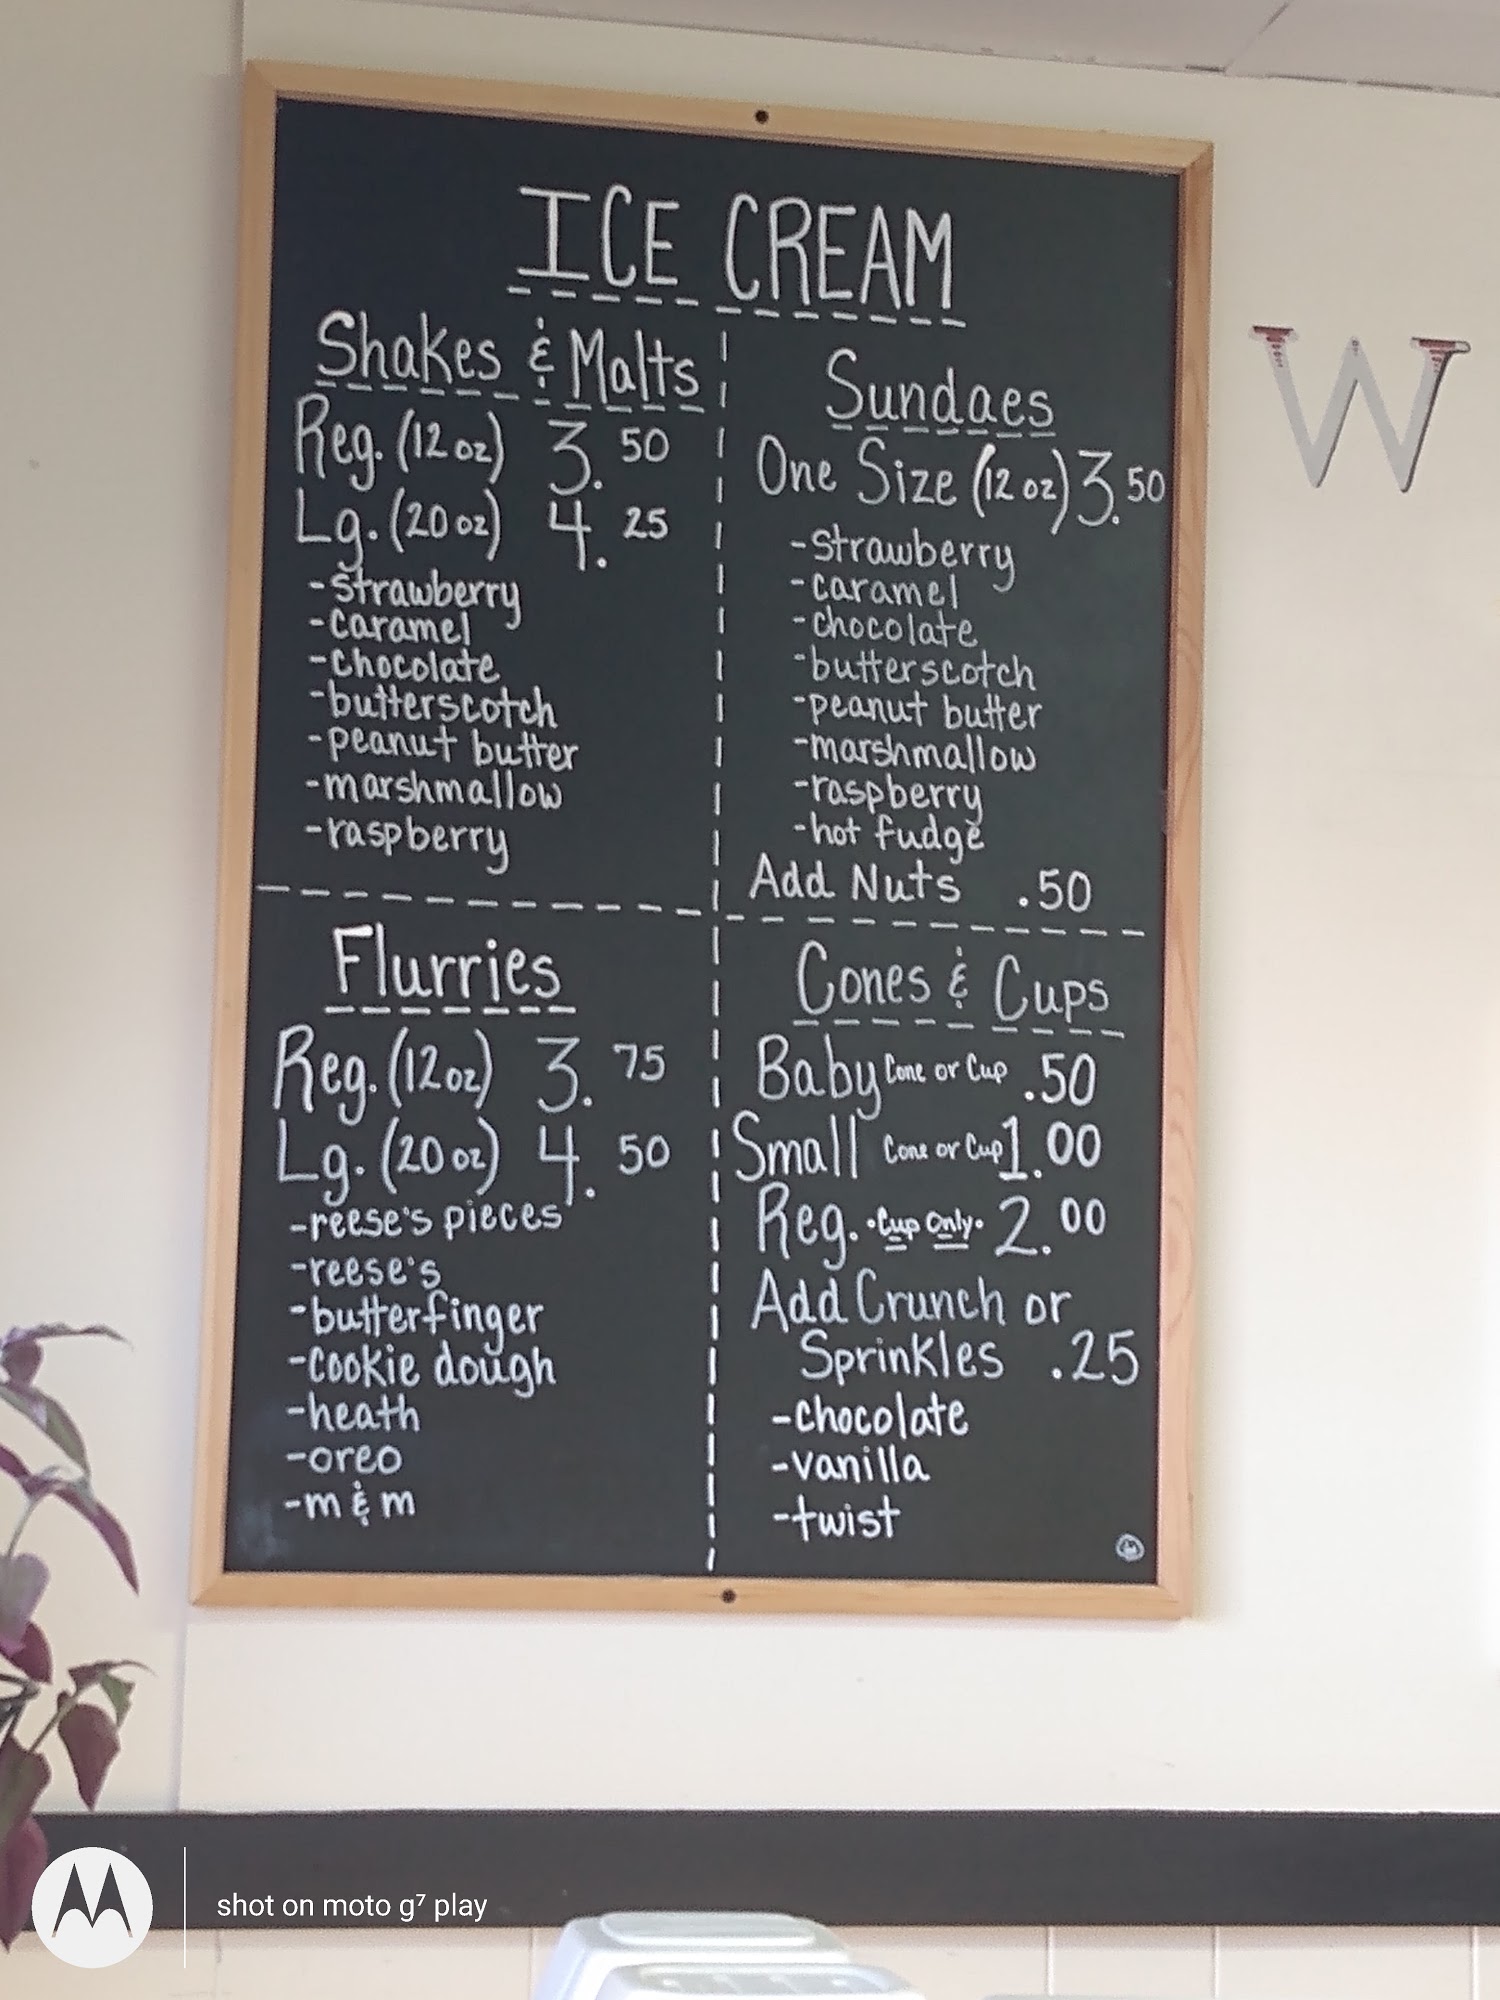 ICE CREAM
Shakes & Malts
Reg. (12 oz) 3.50
Lg. (20 oz) 4.25
-strawberry
-caramel
-chocolate
-butterscotch
-peanut butter
-marshmallow
-raspberry
Sundaes
One Size (12 oz) 3.50
-strawberry
-caramel
-chocolate
-butterscotch
-peanut butter
-marshmallow
-raspberry
-hot fudge
Add Nuts .50
Flurries
Reg. (12 oz) 3.75
Lg. (20 oz) 4.50
-reese's pieces
-reese's
-butterfinger
-cookie dough
-heath
-oreo
-m & m
Cones & Cups
Baby Cone or Cup .50
Small Cone or Cup 1.00
Reg. •Cup Only• 2.00
Add Crunch or
Sprinkles .25
-chocolate
-vanilla
-twist
W
shot on moto g⁷ play